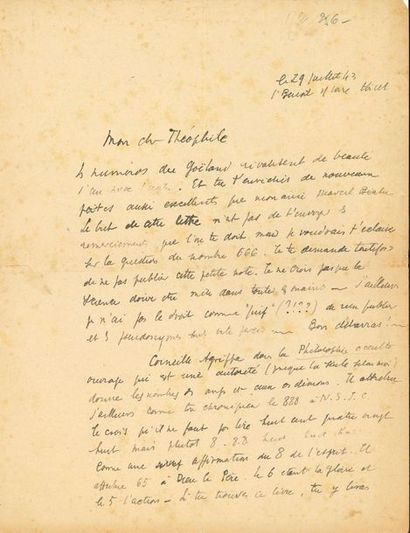 le 29 Juillet 43
St Benoit s/ Loire Loiret
Mon cher Théophile
Les numéros du Goéland rivalisent de beauté
l'un avec l'autre. Et tu t'enrichis de nouveaux
poètes aussi excellents que mon ami Marcel
Le but de cette lettre n'est pas de t'envoyer les
remerciements que l'on te doit mais je voudrais t'éclairer
sur la question du nombre 666. Je te demande toutefois
de ne pas publier cette petite note. Je ne crois pas que la
science doive être mise dans toutes les mains — D'ailleurs
je n'ai pas le droit comme "juif" (?!??) de rien publier
et 3 pseudonymes Bon débarras —
Corneille Agrippa dans la Philosophie occulte
ouvrage qui est une autorité (presque la seule selon moi)
donne les nombres des anges et ceux des démons. Il attribue
d'ailleurs comme ton chroniqueur le 888 à N.S.J.C
Je crois qu'il ne faut pas lire huit cent quatre vingt
huit mais plutôt 8.8.8 huit huit huit
comme une affirmation du 8 de l'esprit. Il
attribue 65 à Dieu le Père. le 6 étant la gloire et
le 5 l'action — Si tu trouves ce livre, tu y liras